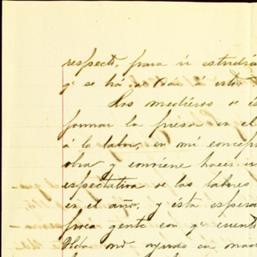 respecto, para ir estudia
y se há
Los medieros
formar la presa en el
á la labor, en mi concep
obra y conviene hacer
espectativa de las labores
en el año, y ésta espera
poca gente con qe cuent
Uda me ayuda en